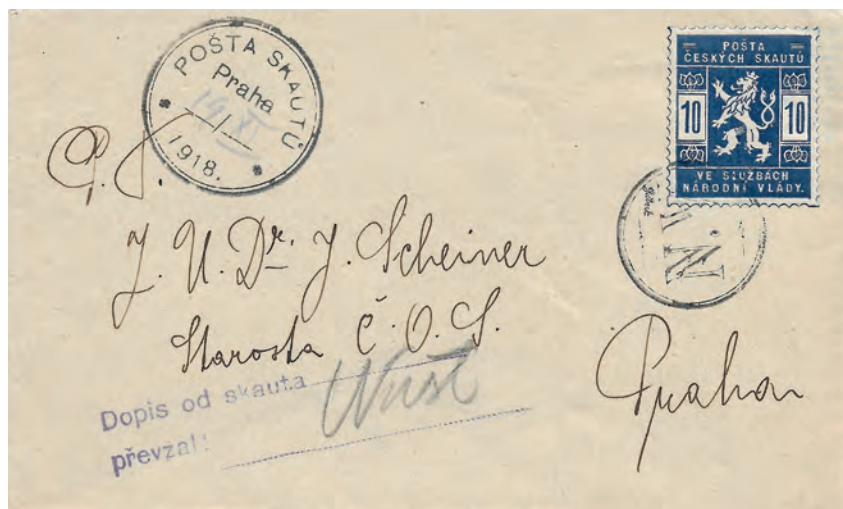 POŠTA SKAUTŮ
Praha
19/XI
1918.
POŠTA
ČESKÝCH SKAUTŮ
10 10
VE SLUŽBÁCH
NÁRODNÍ VLÁDY.
N. V.
P. T.
J. U. Dr. J. Scheiner
Starosta Č. O. S.
Praha
Dopis od skauta
převzal: